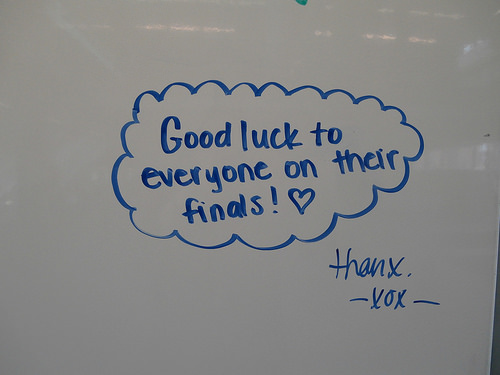 Good luck to
everyone on their
finals! ♡
thanx.
-xox-